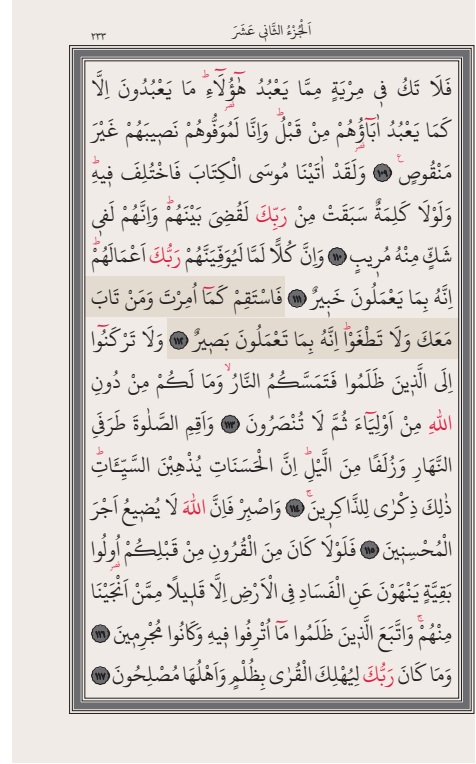 اَلْجُزْءُ الثَّانِي عَشَرَ
٢٣٣
فَلَا تَكُ فِي مِرْيَةٍ مِمَّا يَعْبُدُ هٰٓؤُلَٓاءِۜ مَا يَعْبُدُونَ اِلَّا
كَمَا يَعْبُدُ اٰبَٓاؤُهُمْ مِنْ قَبْلُۜ وَاِنَّا لَمُوَفُّوهُمْ نَص۪يبَهُمْ غَيْرَ
مَنْقُوصٍ۟ ﴿١٠٩﴾ وَلَقَدْ اٰتَيْنَا مُوسَى الْكِتَابَ فَاخْتُلِفَ ف۪يهِۜ
وَلَوْلَا كَلِمَةٌ سَبَقَتْ مِنْ رَبِّكَ لَقُضِيَ بَيْنَهُمْۜ وَاِنَّهُمْ لَف۪ي
شَكٍّ مِنْهُ مُر۪يبٍ ﴿١١٠﴾ وَاِنَّ كُلًّا لَمَّا لَيُوَفِّيَنَّهُمْ رَبُّكَ اَعْمَالَهُمْۜ
اِنَّهُ بِمَا يَعْمَلُونَ خَب۪يرٌ ﴿١١١﴾ فَاسْتَقِمْ كَمَٓا اُمِرْتَ وَمَنْ تَابَ
مَعَكَ وَلَا تَطْغَوْاۜ اِنَّهُ بِمَا تَعْمَلُونَ بَص۪يرٌ ﴿١١٢﴾ وَلَا تَرْكَنُٓوا
اِلَى الَّذ۪ينَ ظَلَمُوا فَتَمَسَّكُمُ النَّارُۙ وَمَا لَكُمْ مِنْ دُونِ
اللّٰهِ مِنْ اَوْلِيَٓاءَ ثُمَّ لَا تُنْصَرُونَ ﴿١١٣﴾ وَاَقِمِ الصَّلٰوةَ طَرَفَيِ
النَّهَارِ وَزُلَفًا مِنَ الَّيْلِۜ اِنَّ الْحَسَنَاتِ يُذْهِبْنَ السَّيِّـَٔاتِۜ
ذٰلِكَ ذِكْرٰى لِلذَّاكِر۪ينَۚ ﴿١١٤﴾ وَاصْبِرْ فَاِنَّ اللّٰهَ لَا يُض۪يعُ اَجْرَ
الْمُحْسِن۪ينَ ﴿١١٥﴾ فَلَوْلَا كَانَ مِنَ الْقُرُونِ مِنْ قَبْلِكُمْ اُو۬لُوا
بَقِيَّةٍ يَنْهَوْنَ عَنِ الْفَسَادِ فِي الْاَرْضِ اِلَّا قَل۪يلًا مِمَّنْ اَنْجَيْنَا
مِنْهُمْۚ وَاتَّبَعَ الَّذ۪ينَ ظَلَمُوا مَٓا اُتْرِفُوا ف۪يهِ وَكَانُوا مُجْرِم۪ينَ ﴿١١٦﴾
وَمَا كَانَ رَبُّكَ لِيُهْلِكَ الْقُرٰى بِظُلْمٍ وَاَهْلُهَا مُصْلِحُونَ ﴿١١٧﴾